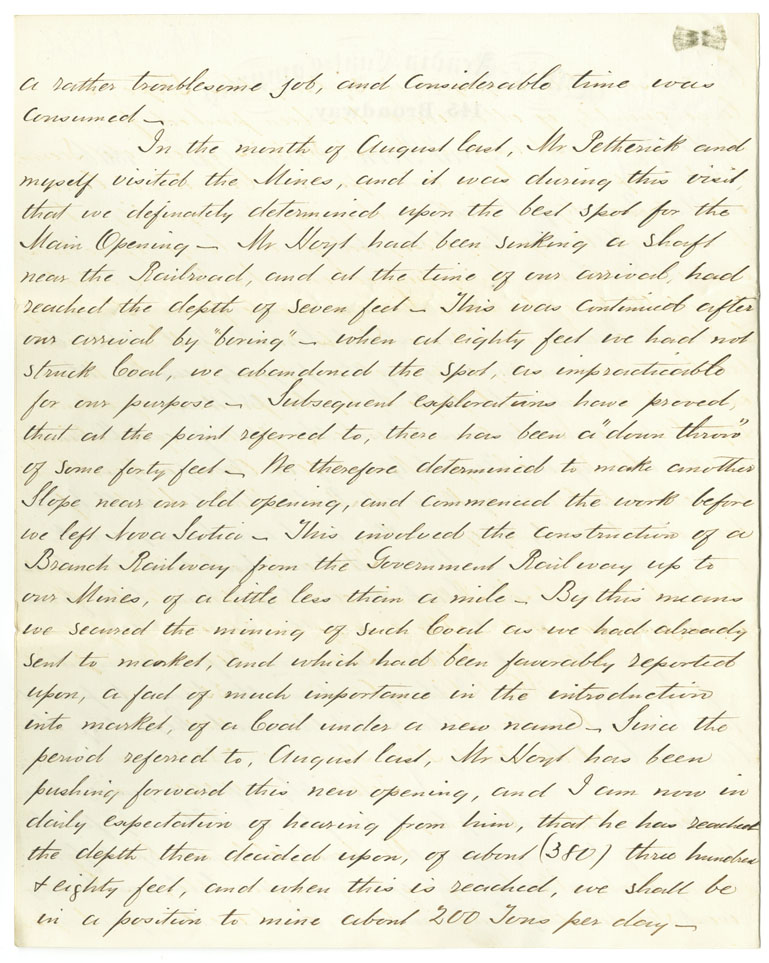 a rather troublesome job, and considerable time was
consumed –
In the month of August last, Mr Petherick and
myself visited the Mines, and it was during this visit,
that we definately determined upon the best spot for the
Main Opening – Mr Hoyt had been sinking a shaft
near the Railroad, and at the time of our arrival, had
reached the depth of seven feet – This was continued after
our arrival by "boring" – when at eighty feet we had not
struck Coal, we abandoned the spot, as impracticable
for our purpose – Subsequent explorations have proved,
that at the point referred to, there has been a "down throw"
of some forty feet – We therefore determined to make another
Slope near our old opening, and commenced the work before
we left Nova Scotia – This involved the construction of a
Branch Railway from the Government Railway up to
our Mines, of a little less than a mile – By this means
we secured the mining of such Coal as we had already
sent to market, and which had been favorably reported
upon, a fact of much importance in the introduction
into market, of a Coal under a new name – Since the
period referred to, August last, Mr Hoyt has been
pushing forward this new opening, and I am now in
daily expectation of hearing from him, that he has reached
the depth then decided upon, of about (380) three hundred
& eighty feet, and when this is reached, we shall be
in a position to mine about 200 Tons per day –